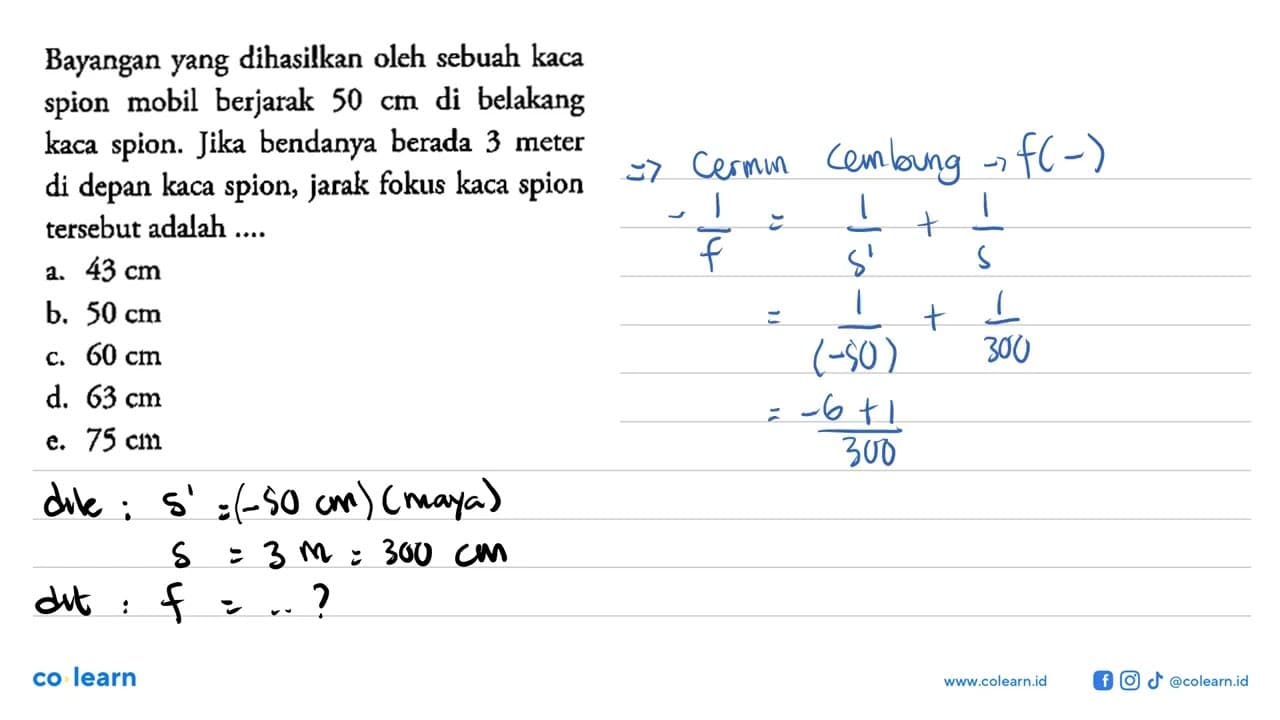 Bayangan yang dihasilkan oleh sebuah kaca
spion mobil berjarak 50 cm di belakang
kaca spion. Jika bendanya berada 3 meter
di depan kaca spion, jarak fokus kaca spion
tersebut adalah ....
a. 43 cm
b. 50 cm
c. 60 cm
d. 63 cm
e. 75 cm
dik : s' = (-50 cm) (maya)
s = 3 m = 300 cm
dit : f = .. ?
=> Cermin cembung → f(-)
- 1/f = 1/s' + 1/s
= 1/(-50) + 1/300
= -6 + 1/300
co learn
www.colearn.id
@colearn.id